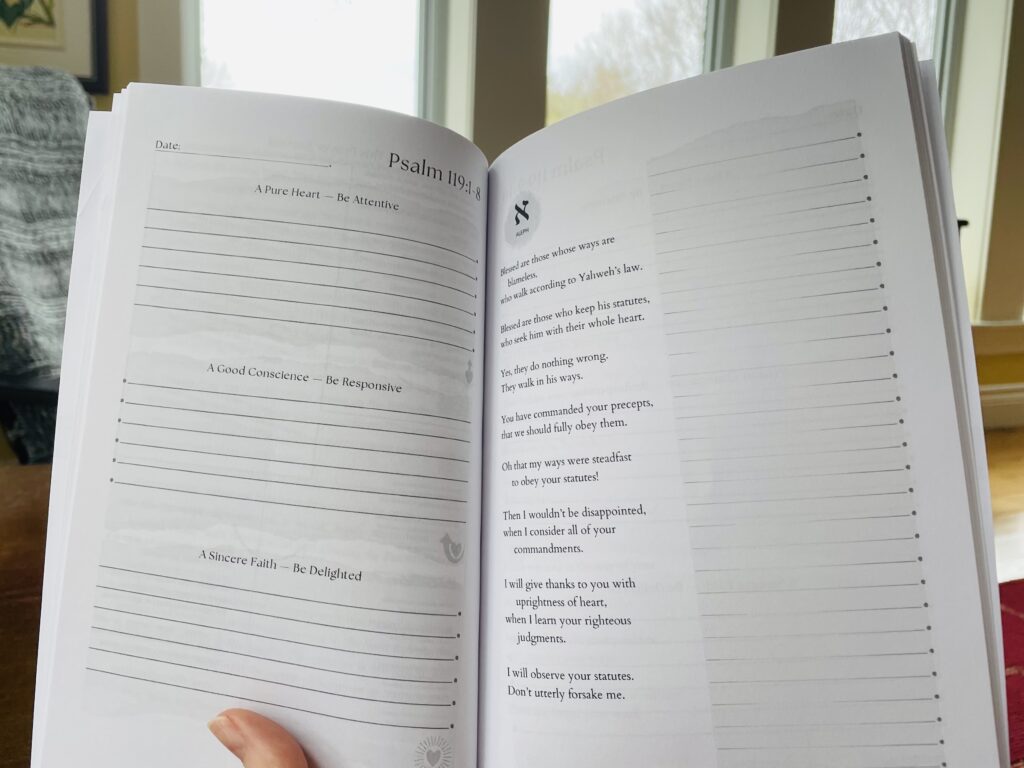 Date:
Psalm 119:1-8
A Pure Heart — Be Attentive
A Good Conscience — Be Responsive
A Sincere Faith — Be Delighted
א
ALEPH
Blessed are those whose ways are
blameless,
who walk according to Yahweh's law.
Blessed are those who keep his statutes,
who seek him with their whole heart.
Yes, they do nothing wrong.
They walk in his ways.
You have commanded your precepts,
that we should fully obey them.
Oh that my ways were steadfast
to obey your statutes!
Then I wouldn't be disappointed,
when I consider all of your
commandments.
I will give thanks to you with
uprightness of heart,
when I learn your righteous
judgments.
I will observe your statutes.
Don't utterly forsake me.